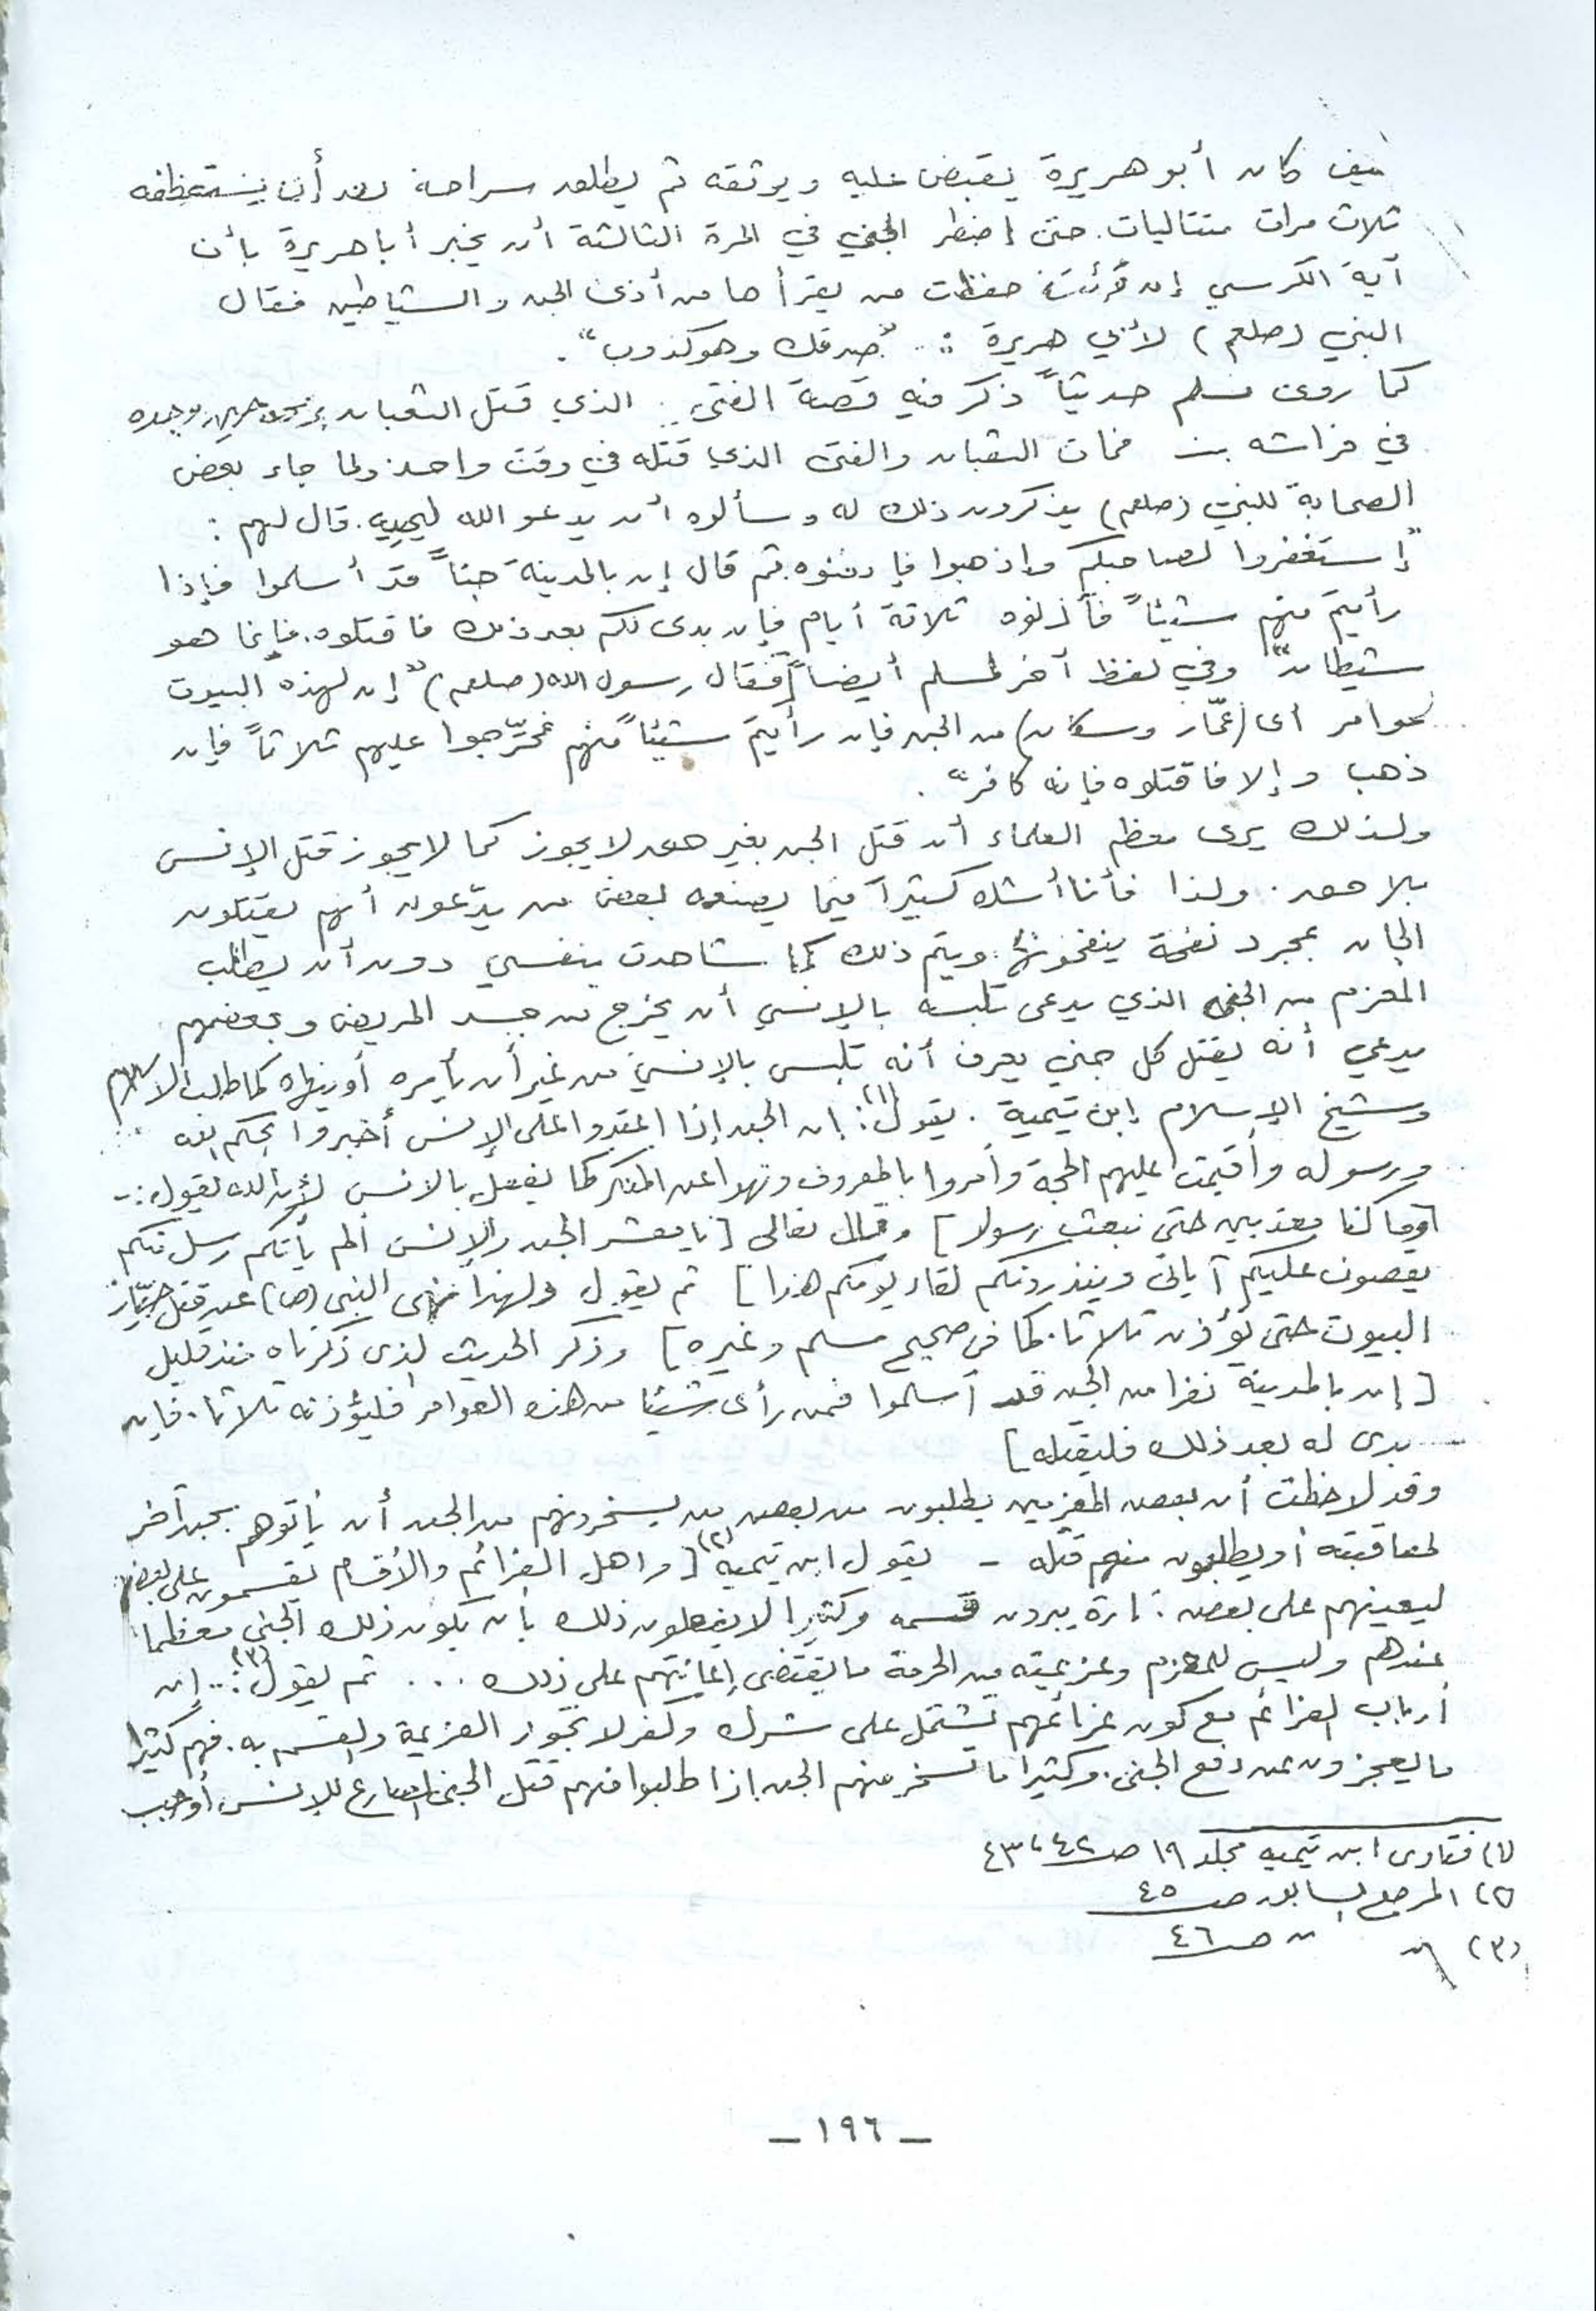 كيف كان أبو هريرة يقبض عليه ويوثقه ثم يطلق سراحه بعد أن يستعطفه
ثلاث مرات متتاليات. حتى إضطر الجني في المرة الثالثة أن يخبر أبا هريرة بأن
آية الكرسي إن قُرئت حفظت من يقرأها من أذى الجن والشياطين فقال
النبي (صلعم) لأبي هريرة : "صدقك وهو كذوب".
كما روى مسلم حديثاً ذكر فيه قصة الفتى .. الذي قتل الثعبان وجده
في فراشه فمات الثعبان والفتى الذي قتله في وقت واحد ولما جاء بعض
الصحابة للنبي (صلعم) يذكرون ذلك له وسألوه أن يدعو الله ليحييه. قال لهم :
"إستغفروا لصاحبكم وإذهبوا فإدفنوه. ثم قال إن بالمدينة جناً قد أسلموا فإذا
رأيتم منهم شيئاً فآذنوه ثلاثة أيام فإن بدى لكم بعد ذلك فاقتلوه. فإنما هو
شيطان" وفي لفظ آخر لمسلم أيضاً [فقال رسول الله (صلعم) "إن لهذه البيوت
عوامر أى (عمّار وسكان) من الجن فإن رأيتم شيئاً منهم فحرّجوا عليهم ثلاثاً فإن
ذهب وإلا فاقتلوه فإنه كافر".
ولذلك يرى معظم العلماء أن قتل الجن بغير حق لا يجوز كما لا يجوز قتل الإنس
بلا حق. ولذا فأنا أشك كثيراً فيما يصنعه بعض من يدّعون أنهم يقتلون
الجان بمجرد نفخة ينفخونها. ويتم ذلك كما شاهدت بنفسي دون أن يطالب
المعزم من الجني الذي يدعى تلبسه بالإنسي أن يخرج من جسد المريض وبعضهم
يدعي أنه يقتل كل جني يعرف أنه تلبس بالإنسي من غير أن يأمره أو ينهاه كما طلب الإسلام
وشيخ الإسلام إبن تيمية . يقول(١): إن الجن إذا اعتدوا على الإنس أخبروا بحكم الله
ورسوله وأقيمت عليهم الحجة وأمروا بالمعروف ونهوا عن المنكر كما يفعل بالانس لأن الله يقول :-
[وما كنا معذبين حتى نبعث رسولا] وقال تعالى [يا معشر الجن والإنس ألم يأتكم رسل منكم
يقصون عليكم آياتي وينذرونكم لقاء يومكم هذا] ثم يقول ولهذا نهى النبي (ص) عن قتل حيّات
البيوت حتى تؤذن ثلاثا. كما في صحيح مسلم وغيره] وذكر الحديث الذى ذكرناه منذ قليل
[إن بالمدينة نفرا من الجن قد أسلموا فمن رأى شيئا من هذه العوامر فليؤذنه ثلاثا. فإن
بدى له بعد ذلك فليقتله]
وقد لاحظت أن بعض المعزمين يطلبون من بعض من يسخرونهم من الجن أن يأتوهم بجن آخر
لمعاقبته أو يطلبون منهم قتله - يقول ابن تيمية(٢) [وأهل العزائم والأقسام يقسمون على بعضهم
ليعينهم على بعض. تارة يبرون قسمه وكثيرا لا يفعلون ذلك بأن يكون ذلك الجنى معظما
عندهم وليس للمعزم وعزيمته من الحرمة ما يقتضى إعانتهم على ذلك ... ثم يقول(٣): .. إن
أرباب العزائم مع كون عزائمهم تشتمل على شرك وكفر لا تجوز العزيمة والقسم به. فهم كثيرا
ما يعجزون عن دفع الجنى. وكثيرا ما تسخر منهم الجن إذا طلبوا منهم قتل الجنى الصارع للإنس أو حبسه
(١) فتاوى ابن تيمية مجلد ١٩ صـ ٤٢، ٤٣
(٢) المرجع السابق صـ ٤٥
(٣) " " صـ ٤٦
— ١٩٦ —